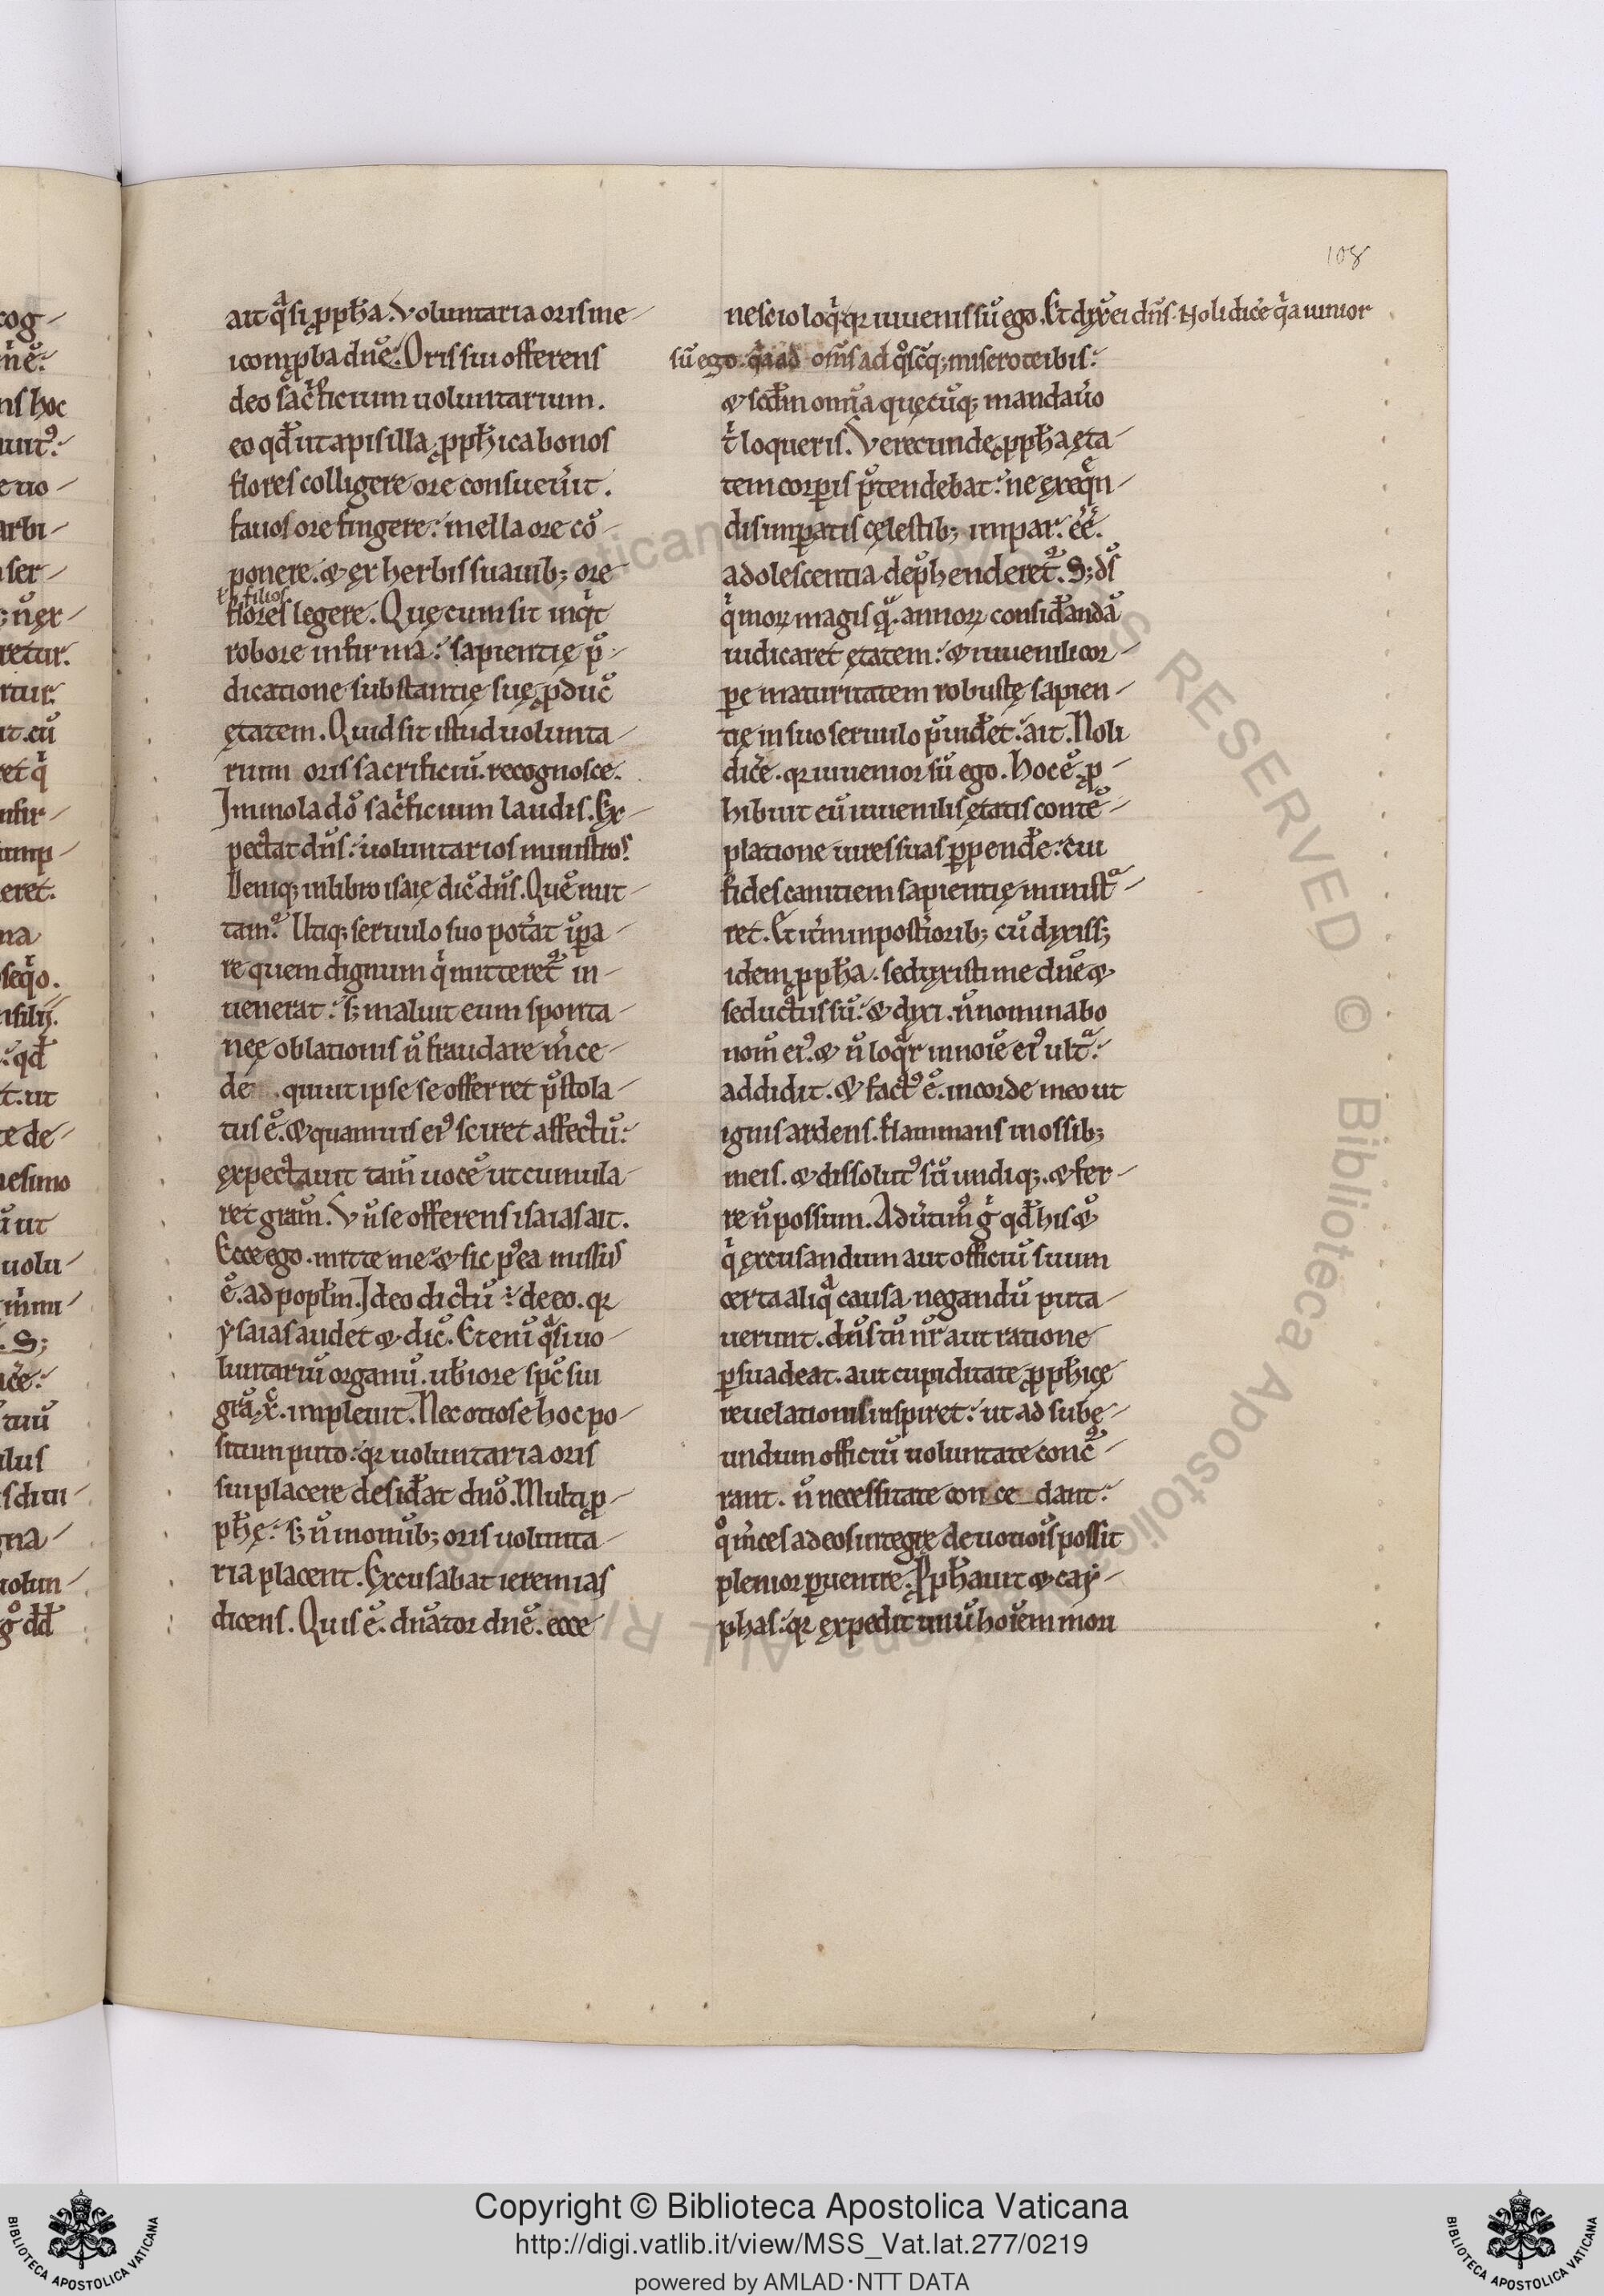 108
ait q̄si ꝓph̄a. Voluntaria oris me
i comꝓba dn̄e. Oris sui offerens
deo sacͥficium uoluntarium.
eo qd̄ ut apis illa ꝓph̄ica bonos
flores colligere ore consueu̾it.
fauos ore fingere. mella ore cō
ponere. & ex herbis suauib; ore
ł filios
flores legere. Quę cum sit inqͥt
robore infirma. sapientię p̄
dicatione substantię suę ꝓduc̄
ętatem. Quid sit istud uolunta
rium oris sacrificiū. recognosce.
Immola dō sacͥficium laudis. Ex
pectat dn̄s. uoluntarios ministros.
Deniq; in libro isaię dic̄ dn̄s. Quē mit
tam? Utiq; seruulo suo pot̾at īꝑa
re quem dignum qͥ mitteret᷒ in
uenerat. s; maluit eum sponta
neę oblationis n̄ fraudare m̾ce
de qui ut ipse se offerret p̄stola
tus ē. & quamuis ei᷒ sciret affectū.
expectauit tam̄ uocē ut cumula
ret gram̄. Vn̄ se offerens isaias ait.
Ecce ego. mitte me. & sic p᷒ea missus
ē. ad popl̄m. Ideo dictū ÷ de eo. qr
ysaias audet & dic̄. Etenī q̄si uo
luntariū organū. ub̾iore sp̄c sui
gr̄a xc̄. impleuit. Nec otiose hoc po
situm puto. qr uoluntaria oris
sui placere desid̾at dn̄o. Multi ꝓ
ph̄ę. s; n̄ in omīb; oris uolunta
ria placent. Excusabat ieremias
dicens. Qui sē. dn̄ator dn̄e. ecce
nescio loqͥ. qr iuuenis sū ego. Et dix̄ ei dn̄s. Noli dic̾e qͥa iunior
sū ego. qͥa ad om̄s ad qͦscūq; misero te ibis.
& scd̄m omīa quęcūq; mandau̾o
tͥ loqueris. Verecunde ꝓph̄a ęta
tem corꝑis p̄tendebat. ne exeqͣn
dis imꝑatis cęlestib; impar. eē.
adolescentia dep̄henderet᷒. S; ds̄
qͥ morꝝ magis qͣ. annorꝝ consid̾andā
iudicaret ętatem. & iuuenili cor
ꝑe maturitatem robustę sapien
tię in suo seruulo p̄uid̾et. ait. Noli
dic̾e. qr iuuenior sū ego. Hoc ē. ꝓ
hibuit eū iuuenilis ętatis contē
platione uires suas ꝑpend̾e. cui
fides canitiem sapientię ministͣ
ret. Et it̾m in post̾iorib; cū dixiss;
idem ꝓph̄a. seduxisti me dn̄e &
seductus sū. & dixi. n̄ nominabo
nom̄ ei᷒. & n̄ loqͣr in noīe ei᷒ ultͣ.
addidit. & fact᷒ ē. in corde meo ut
ignis ardens. flammans in ossib;
meis. & dissolut᷒ sū undiq;. & fer
re n̄ possum. Adu̾timͦ gͥ qd̄ his &
qͥ excusandum aut officiū suum
certa aliqͣ causa. negandū puta
uerunt. dn̄s tn̄ nr̄ aut ratione
ꝑsuadeat. aut cupiditate ꝓph̄icę
reuelationis inspiret. ut ad sube
undum officiū uoluntate conc᷒
rant. n̄ necessitate con ce dant.
qͦ m̾ces ad eos integrę deuotiois possit
plenior ꝑuenire. Ꝓph̄auit & cay
phas. qr expedit unū hoīem mori
Copyright © Biblioteca Apostolica Vaticana
http://digi.vatlib.it/view/MSS_Vat.lat.277/0219
powered by AMLAD·NTT DATA